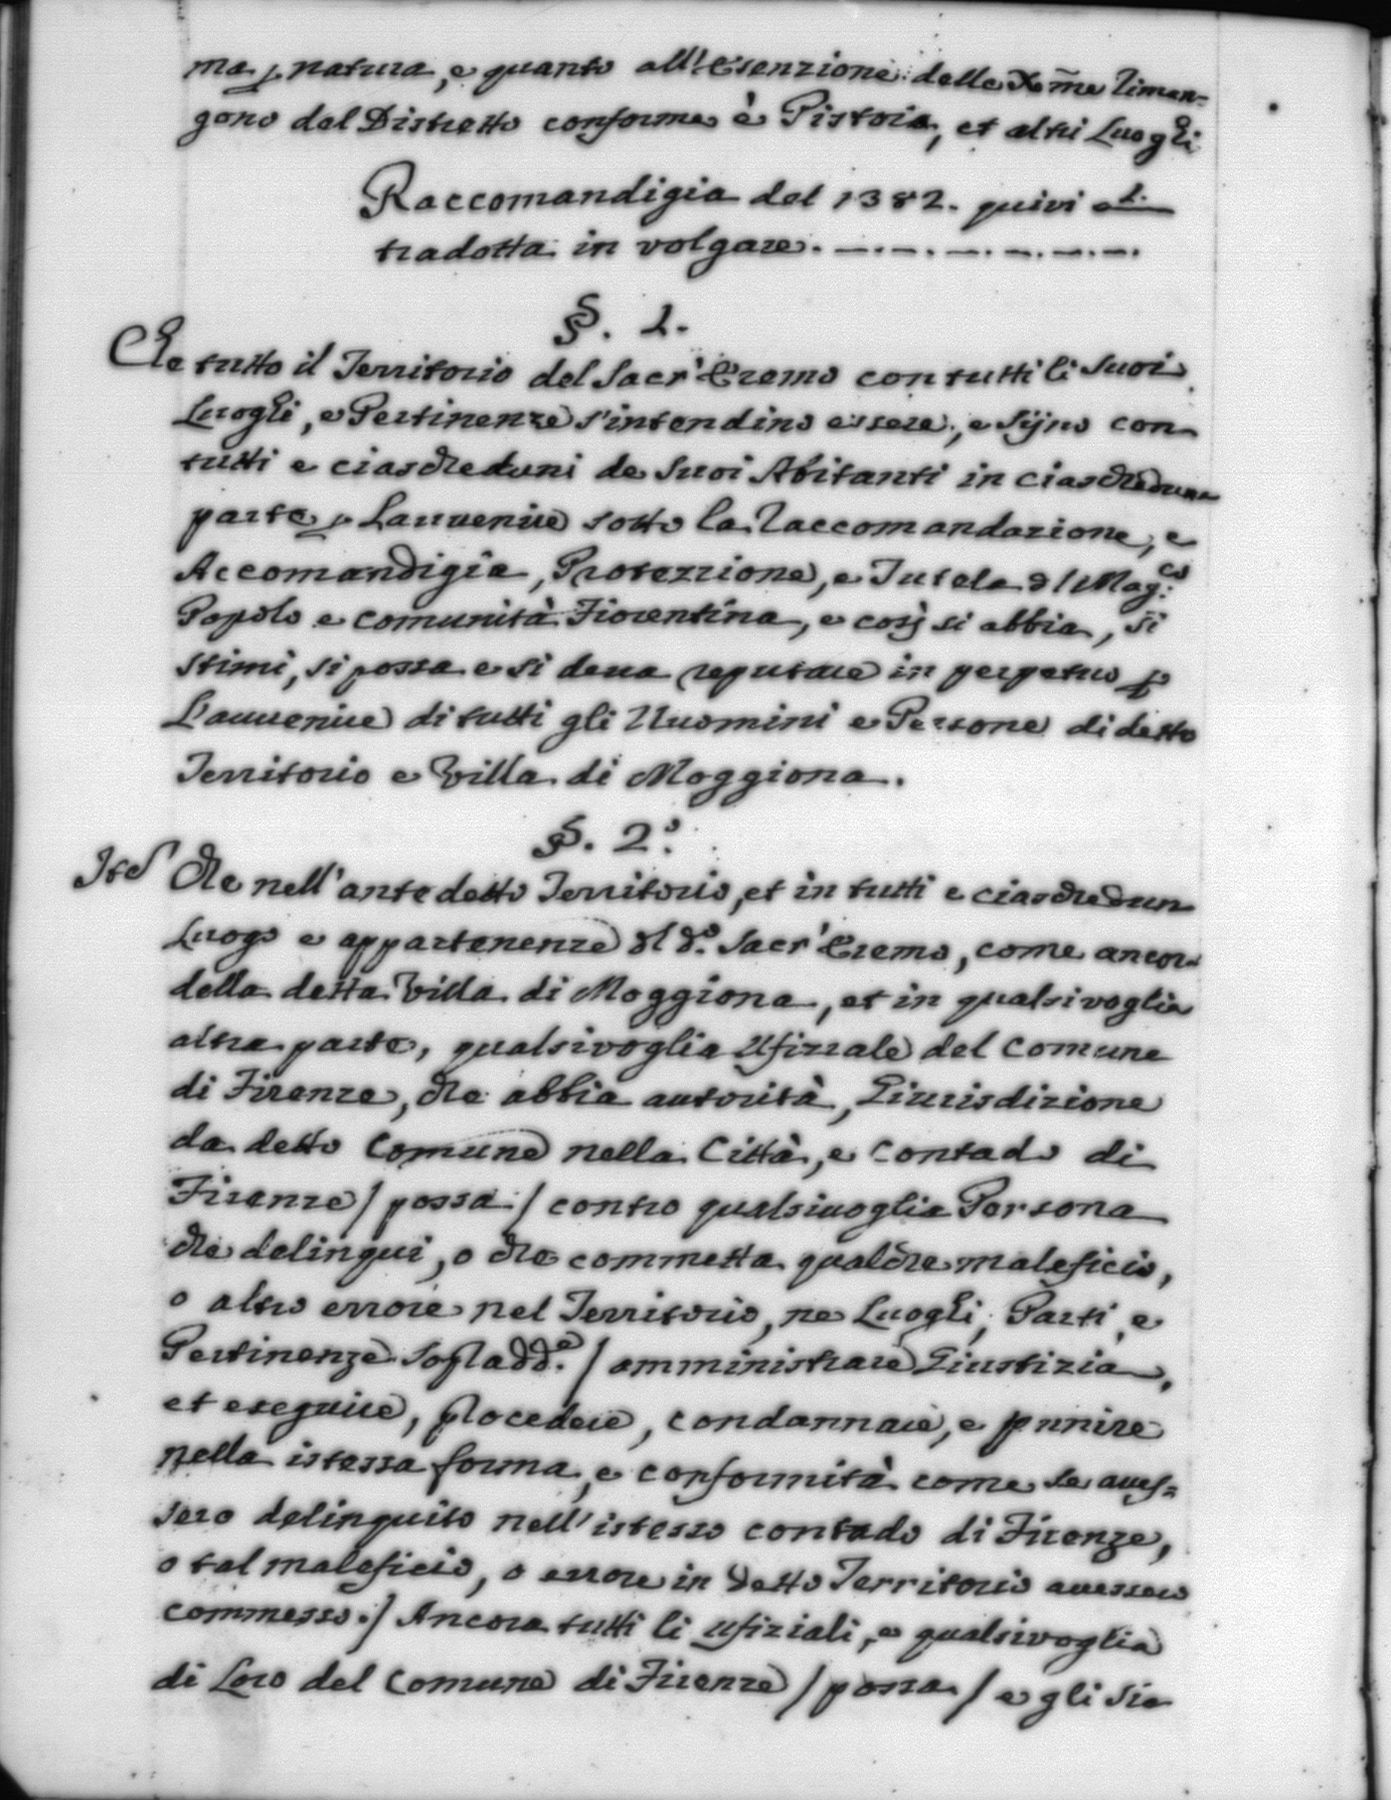 ma p natura, e quanto all'Esenzione delle Xme riman=
gono del Distretto conforme è Pistoia, et altri Luoghi
Raccomandigia del 1382. quivi
tradotta in volgare. —.—.—.—.—.—.
§. 1.
Che tutto il Territorio del Sacr'Eremo con tutti li Suoi
Luoghi, e Pertinenze s'intendino essere, e Sijno con
tutti e ciascheduni de Suoi Abitanti in ciascheduna
parte p Lauuenire sotto la raccomandazione, e
Accomandigia, Protezzione, e Tutela dl Mag:co
Popolo e comunità Fiorentina, e così si abbia, si
stimi, si possa e si deua reputare in perpetuo p
L'auuenire di tutti gli Uuomini e Persone di detto
Territorio e Villa di Moggiona.
§. 2.o
Che nell'antedetto Territorio, et in tutti e ciaschedun
Luogo e appartenenze dl d.o Sacr'Eremo, come ancor
della detta Villa di Moggiona, et in qualsivoglia
altra parte, qualsivoglia Ufizzale del Comune
di Firenze, che abbia autorità, Giurisdizione
da detto Comune nella Città, e Contado di
Firenze / possa / contro qualsiuoglia Persona
che delinqui, o che commetta qualche maleficio,
o altro errore nel Territorio, ne Luoghi, Parti, e
Pertinenze Sopradd.e / amministrare Giustizia,
et eseguire, procedere, condannare, e punire
nella istessa forma, e conformità come se aues=
sero delinquito nell'istesso contado di Firenze,
o tal maleficio, o errore in detto Territorio auessero
commesso. / Ancora tutti li ufiziali, e qualsivoglia
di Loro del Comune di Firenze / possa / e gli sia